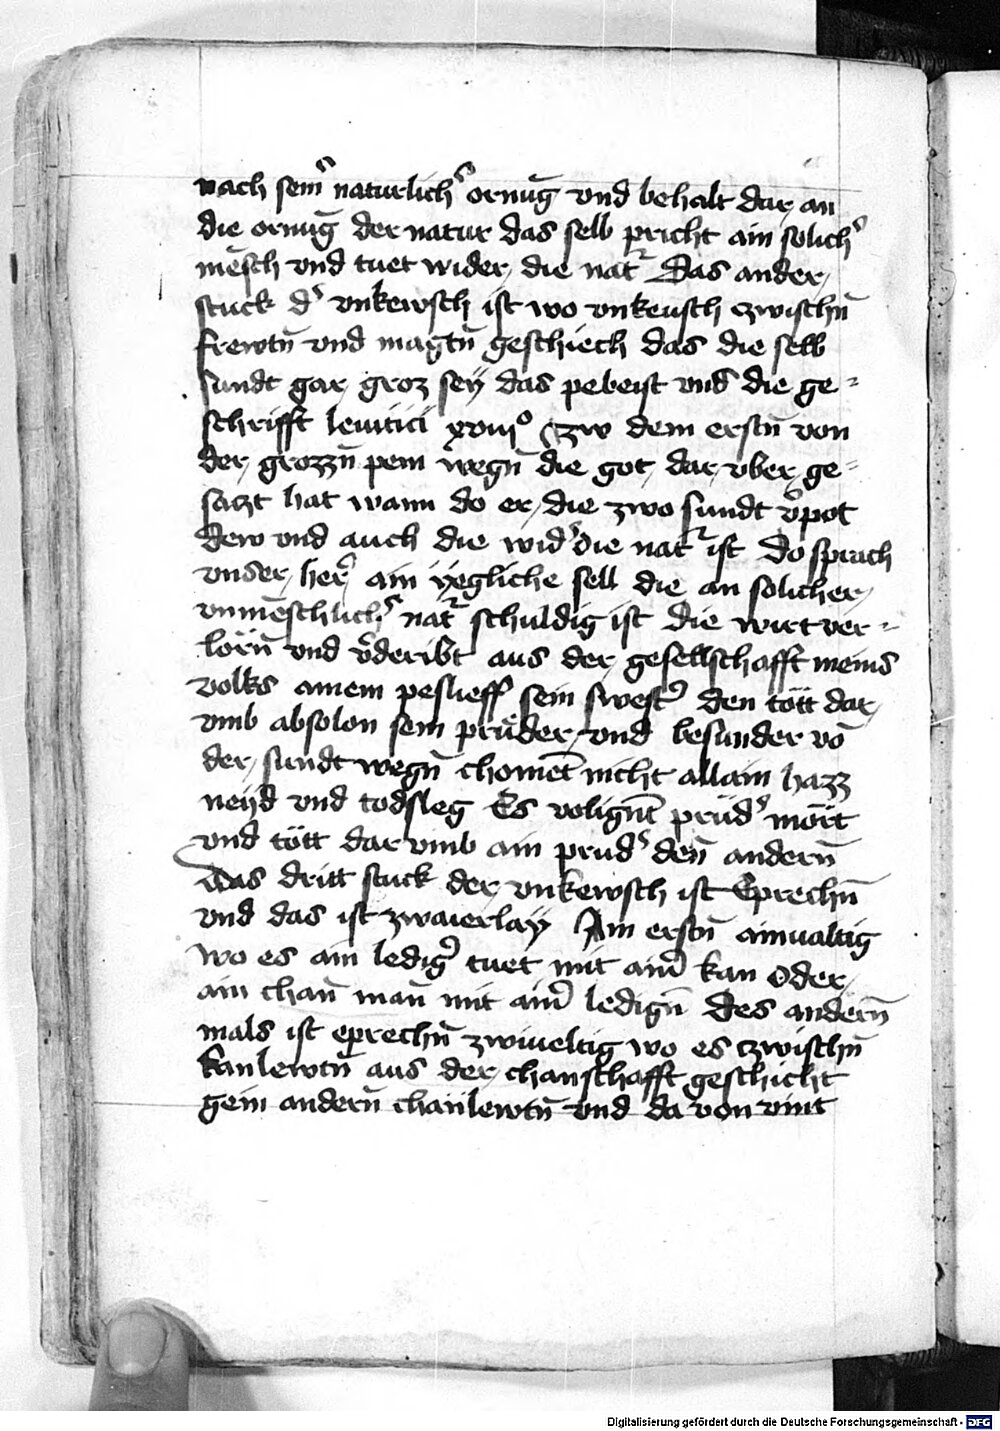 nach sein̄ˢ naturlichˢ ornūg vnd behalt dar an
die ornūg der natur das selb pricht ain solichˢ
mēsch vnd tuet wider die natˢ Das ander
stuck dˢ vnkewsch ist wo vnkeusch czwischn̄
frewtn̄ vnd magtn̄ geschiech das die selb
sundt gar groz sey das pebeist vns die ge⸗
schrifft leuitici xviijº Czw dem erstn̄ von
der grozzn̄ pein wegn̄ die got dar vber ge⸗
saczt hat wann do er die zwo sundt v̄pot
dew vnd auch die widˢ die natˢ ist Do sprach
vnser herˢ ain yegliche sell die an solicher
vnmēschlichˢ natˢ schuldig ist die wirt ver⸗
lorn̄ vnd v̄deribt aus der gesellschafft meins
volks ainem peslieff sein swestˢ den tött dar
vmb absolon sein prüder vnd besunder vō
der sundt wegn̄ chomēt nicht allain hazz
neyd vnd todsleg Es volignt̄ prüdˢ mört
vnd tött dar vmb ain prudˢ den̄ andern̄
Das dritt stuck der vnkewsch ist Eprechn̄
vnd das ist zwaierlay Am erstn̄ ainualtig
wo es ain ledigˢ tuet mit ainˢ kan Oder
ain chan̄ man̄ mit ainˢ ledign̄ Des andern̄
mals ist eprechn̄ zwiueltig wo es czwischn̄
kanlewtn̄ aus der chanschafft geschicht
gein andern̄ chan̄lewtn̄ vnd da von vint
Digitalisierung gefördert durch die Deutsche Forschungsgemeinschaft - DFG